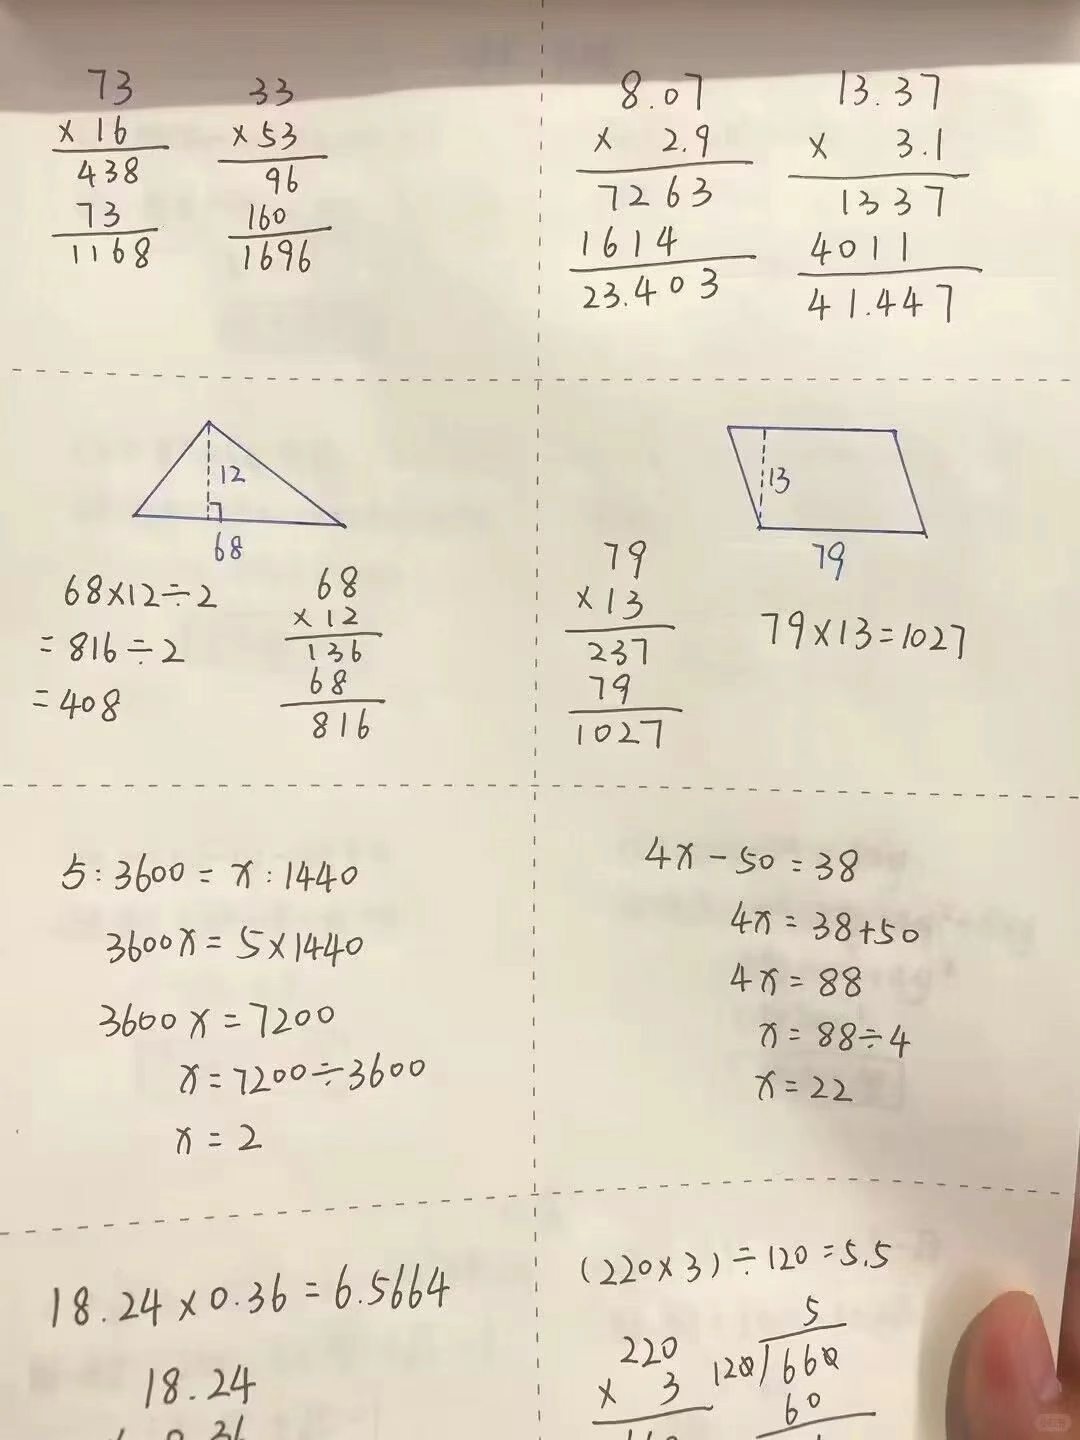 73
× 16
438
73
1168
33
× 53
96
160
1696
8.07
× 2.9
7263
1614
23.403
13.37
× 3.1
1337
4011
41.447
12
68
68×12÷2
= 816÷2
= 408
68
× 12
136
68
816
13
79
79
× 13
237
79
1027
79×13=1027
5:3600=x:1440
3600x=5×1440
3600x=7200
x=7200÷3600
x=2
4x-50=38
4x=38+50
4x=88
x=88÷4
x=22
18.24×0.36=6.5664
18.24
0.36
(220×3)÷120=5.5
220
× 3
5
120 660
60